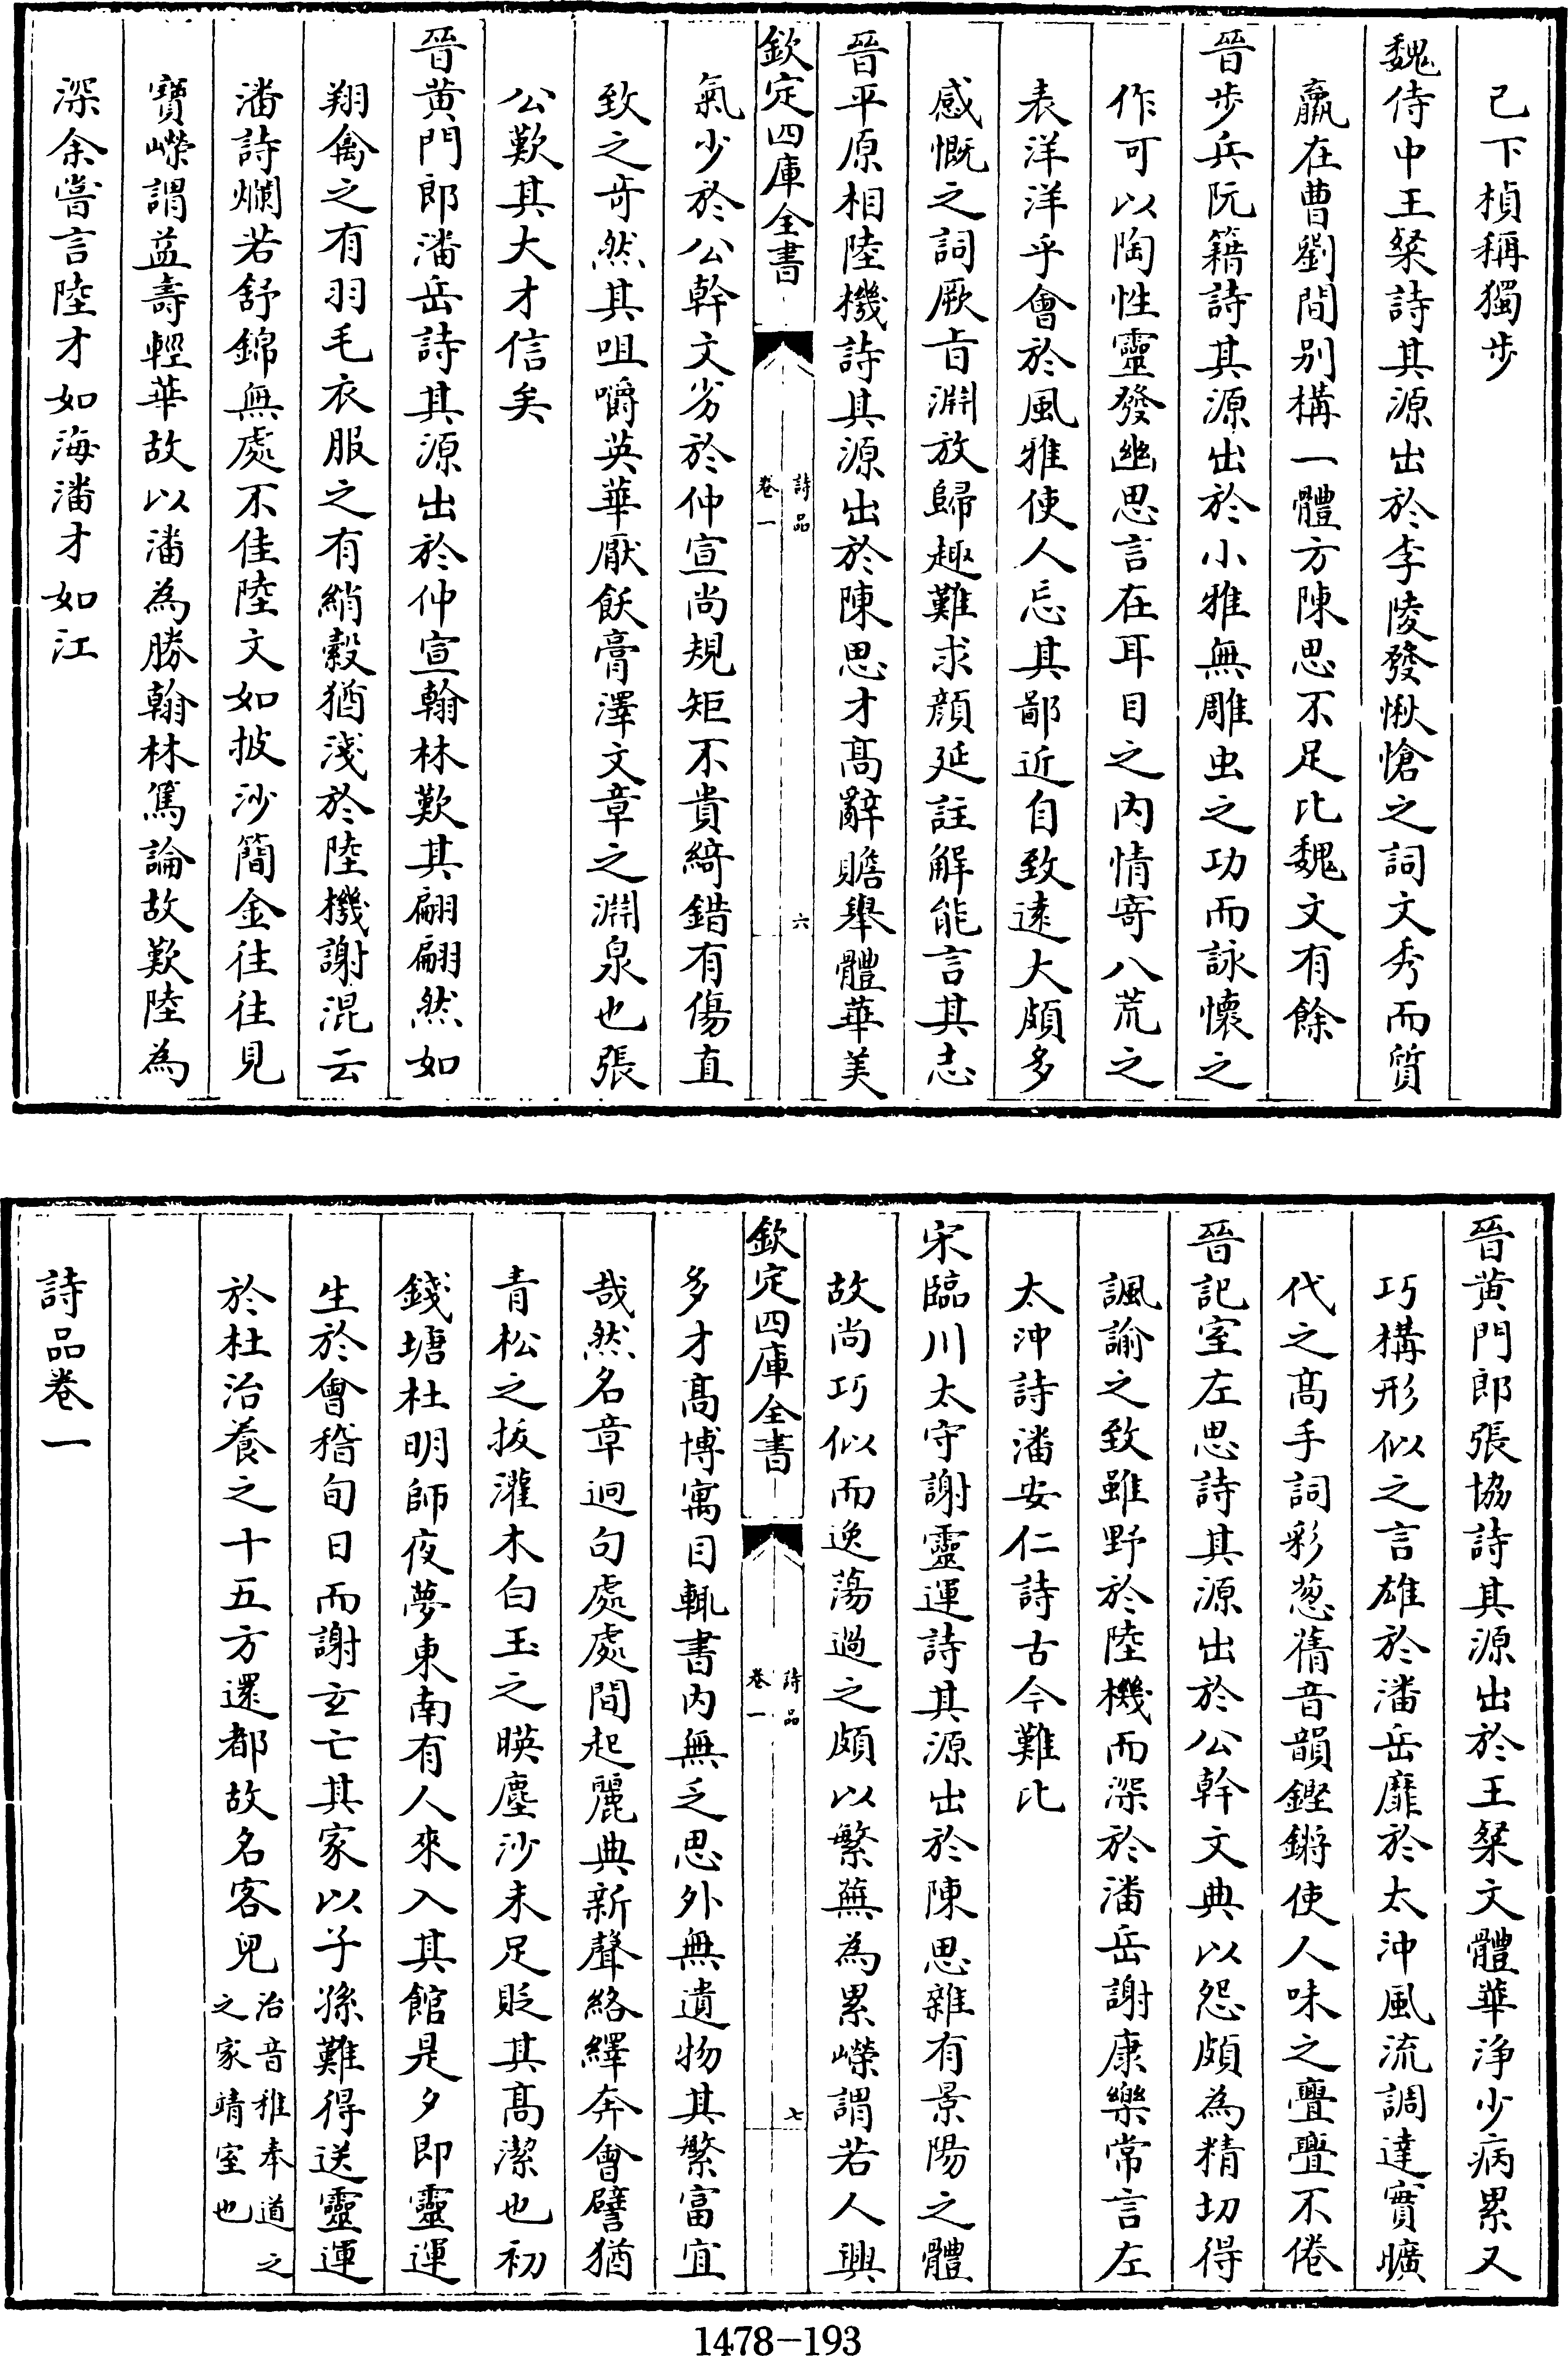 己下楨稱獨步
魏侍中王粲詩其源出於李陵發愀愴之詞文秀而質
羸在曹劉間别構一體方陳思不足比魏文有餘
晉步兵阮籍詩其源出於小雅無雕虫之功而詠懷之
作可以陶性靈發幽思言在耳目之内情寄八荒之
表洋洋乎會於風雅使人忘其鄙近自致遠大頗多
感慨之詞厥旨淵放歸趣難求顔延註解能言其志
晉平原相陸機詩其源出於陳思才髙辭贍舉體華美
欽定四庫全書
詩品
卷一
六
氣少於公幹文劣於仲宣尚規矩不貴綺錯有傷直
致之竒然其咀嚼英華厭飫膏澤文章之淵泉也張
公歎其大才信矣
晉黄門郎潘岳詩其源出於仲宣翰林歎其翩翩然如
翔禽之有羽毛衣服之有綃縠猶淺於陸機謝混云
潘詩爛若舒錦無處不佳陸文如披沙簡金往往見
寶嶸謂益壽輕華故以潘為勝翰林篤論故歎陸為
深余嘗言陸才如海潘才如江
晉黄門郎張協詩其源出於王粲文體華淨少病累又
巧構形似之言雄於潘岳靡於太沖風流調達實曠
代之髙手詞彩葱蒨音韻鏗鏘使人味之亹亹不倦
晉記室左思詩其源出於公幹文典以怨頗為精切得
諷諭之致雖野於陸機而深於潘岳謝康樂常言左
太沖詩潘安仁詩古今難比
宋臨川太守謝靈運詩其源出於陳思雜有景陽之體
故尚巧似而逸蕩過之頗以繁蕪為累嶸謂若人興
欽定四庫全書
詩品
卷一
七
多才髙博寓目輒書内無乏思外無遺物其繁富宜
哉然名章迥句處處間起麗典新聲絡繹奔會譬猶
青松之拔灌木白玉之暎塵沙未足貶其髙潔也初
錢塘杜明師夜夢東南有人來入其館是夕即靈運
生於會稽旬日而謝玄亡其家以子孫難得送靈運
於杜治養之十五方還都故名客兒
治音稚奉道之
之家靖室也
詩品卷一
1478-193